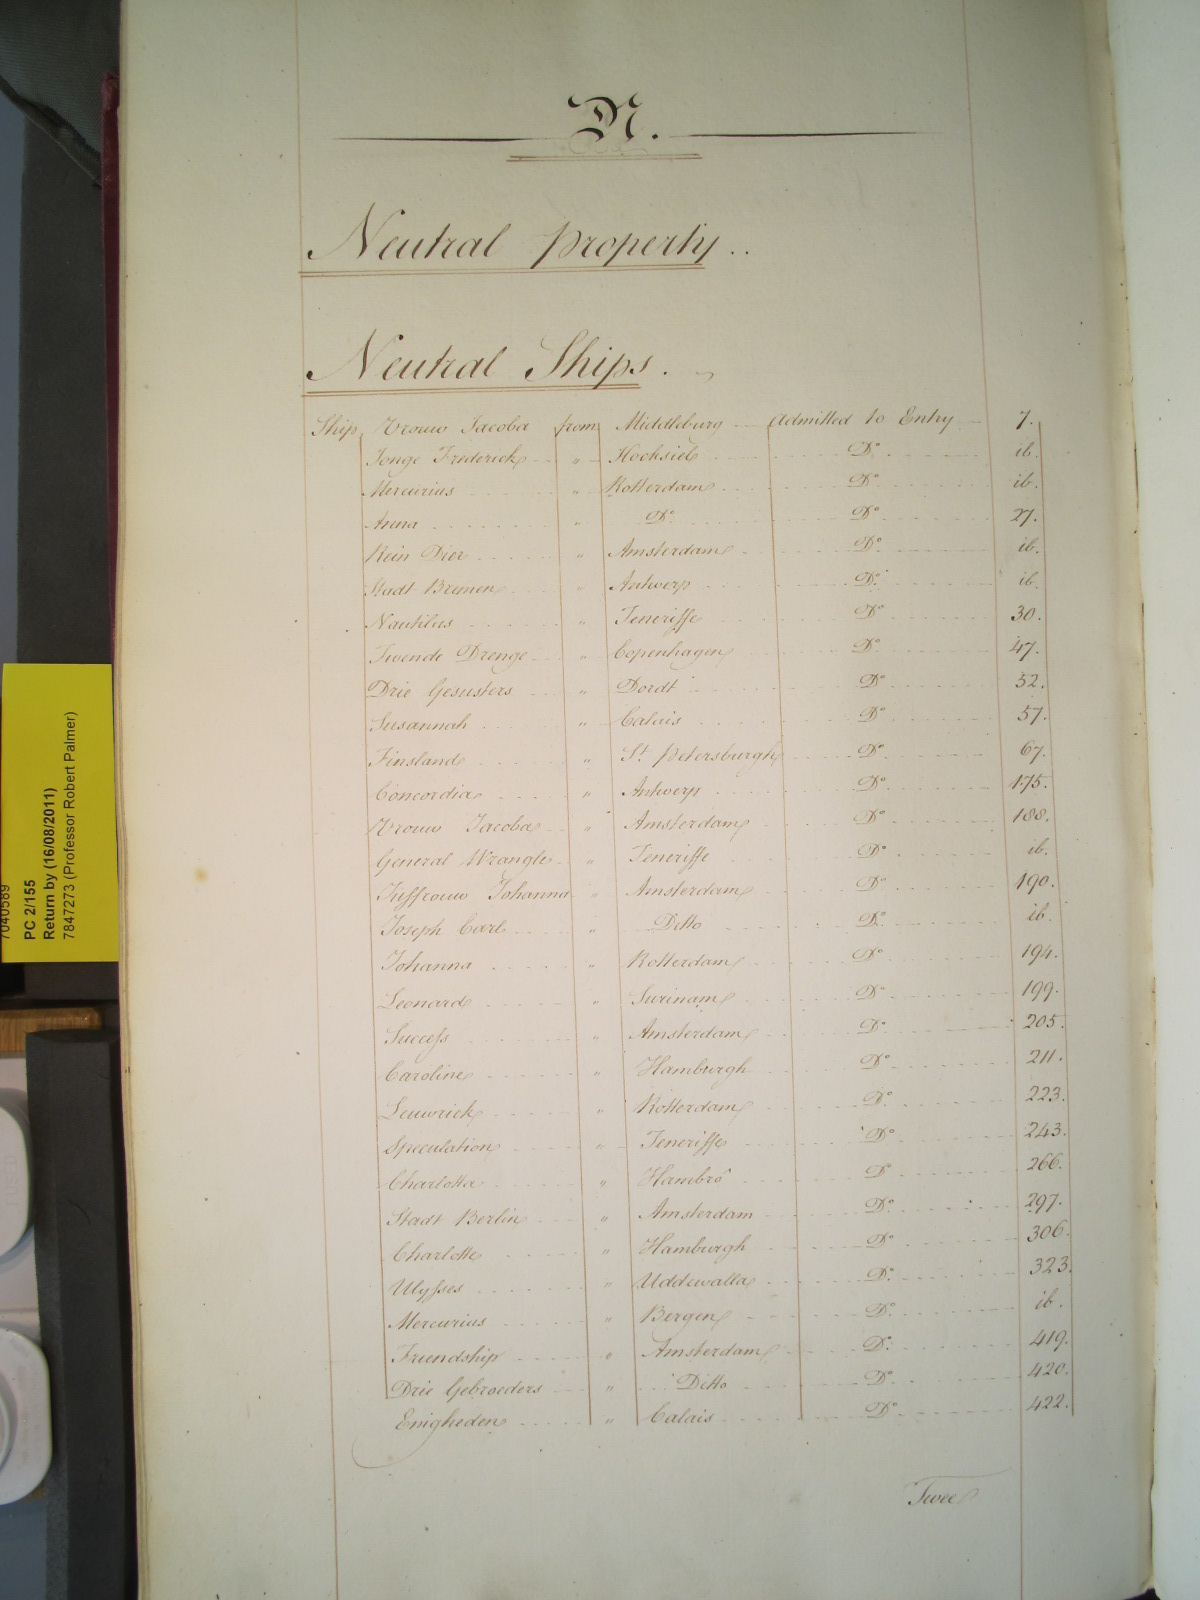 N.
Neutral Property..
Neutral Ships.
Ship Vrouw Jacoba from Middleburg Admitted to Entry 7.
Jonge Frederick " Hooksiel Do. ib.
Mercurius " Rotterdam Do. ib.
Anna " Do. Do. 27.
Rein Dier " Amsterdam Do. ib.
Stadt Bremen " Antwerp Do. ib.
Nautilus " Teneriffe Do. 30.
Twende Drenge " Copenhagen Do. 47.
Drie Gesusters " Dordt Do. 52.
Susannah " Calais Do. 57.
Finsland " St. Petersburgh Do. 67.
Concordia " Antwerp Do. 175.
Vrouw Jacoba " Amsterdam Do. 188.
General Wrangle " Teneriffe Do. ib.
Juffrouw Johanna " Amsterdam Do. 190.
Joseph Carl " Ditto Do. ib.
Johanna " Rotterdam Do. 194.
Leonard " Surinam Do. 199.
Success " Amsterdam Do. 205.
Caroline " Hamburgh Do. 211.
Leuwrick " Rotterdam Do. 223.
Speculation " Teneriffe Do. 243.
Charlotta " Hambro' Do. 266.
Stadt Berlin " Amsterdam Do. 297.
Charlotte " Hamburgh Do. 306.
Ulysses " Uddewalla Do. 323.
Mercurius " Bergen Do. ib.
Friendship " Amsterdam Do. 419.
Drie Gebroeders " Ditto Do. 420.
Enigheden " Calais Do. 422.
Twee
7040589
PC 2/155
Return by (16/08/2011)
7847273 (Professor Robert Palmer)